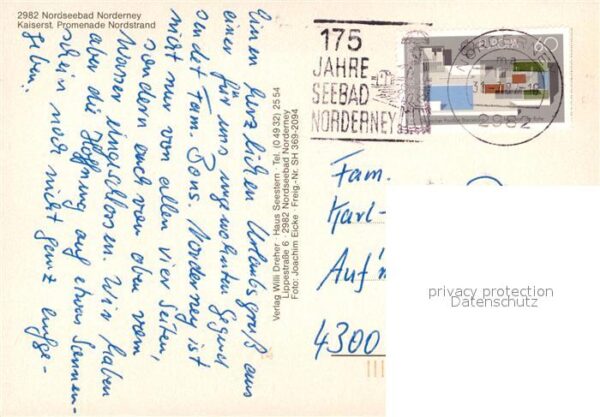 2982 Nordseebad Norderney
Kaiserst. Promenade Nordstrand
Einen herzlichen Urlaubsgruß aus
einer für uns ungewohnten Gegend
sendet Fam. Bons. Norderney ist
nicht nur von allen vier Seiten,
sondern auch von oben vom
Wasser eingeschlossen. Wir haben
aber die Hoffnung auf etwas Sonnen-
schein noch nicht ganz aufge-
geben.
Verlag Willi Dreher · Haus Seestern · Tel. (0 49 32) 25 54
Lippestraße 6 · 2982 Nordseebad Norderney
Foto: Joachim Eicke · Freig.-Nr. SH 369-2094
175
JAHRE
SEEBAD
NORDERNEY
60
2982
Fam.
Karl-
Auf'm
4300
privacy protection
Datenschutz